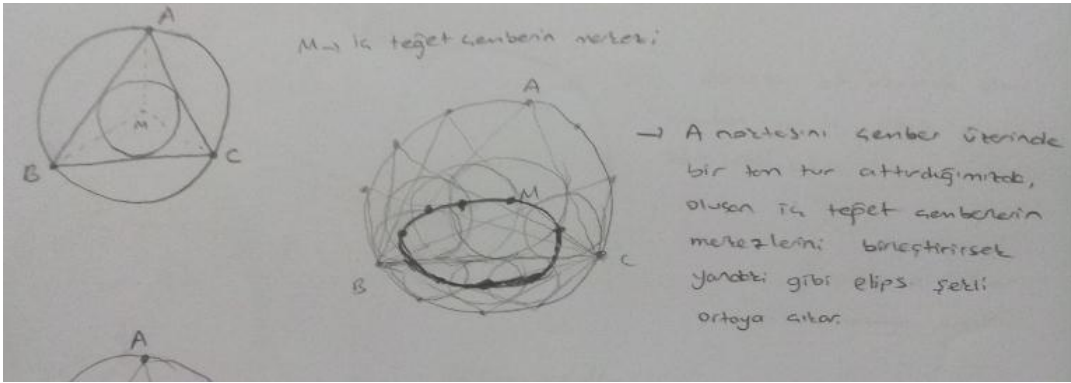 A
M
B
C
M → iç teğet çemberin merkezi
A
M
B
C
→ A noktasını çember üzerinde
bir tam tur attırdığımızda,
oluşan iç teğet çemberlerin
merkezlerini birleştirirsek
yandaki gibi elips şekli
ortaya çıkar.
A